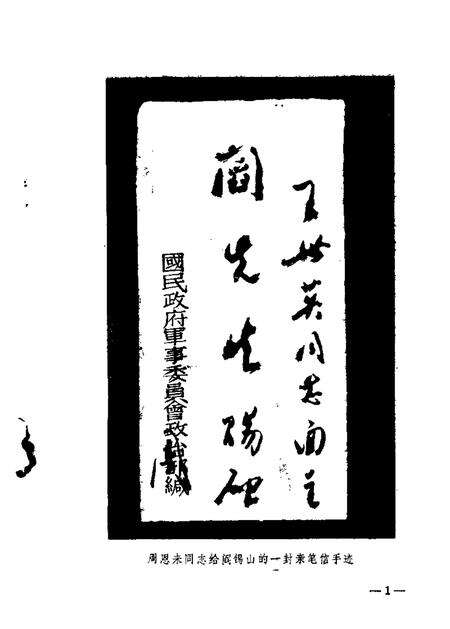 王世英同志面呈
閻先生賜啟
國民政府軍事委員會政治部緘
周恩来同志给阎锡山的一封亲笔信手迹
—1—